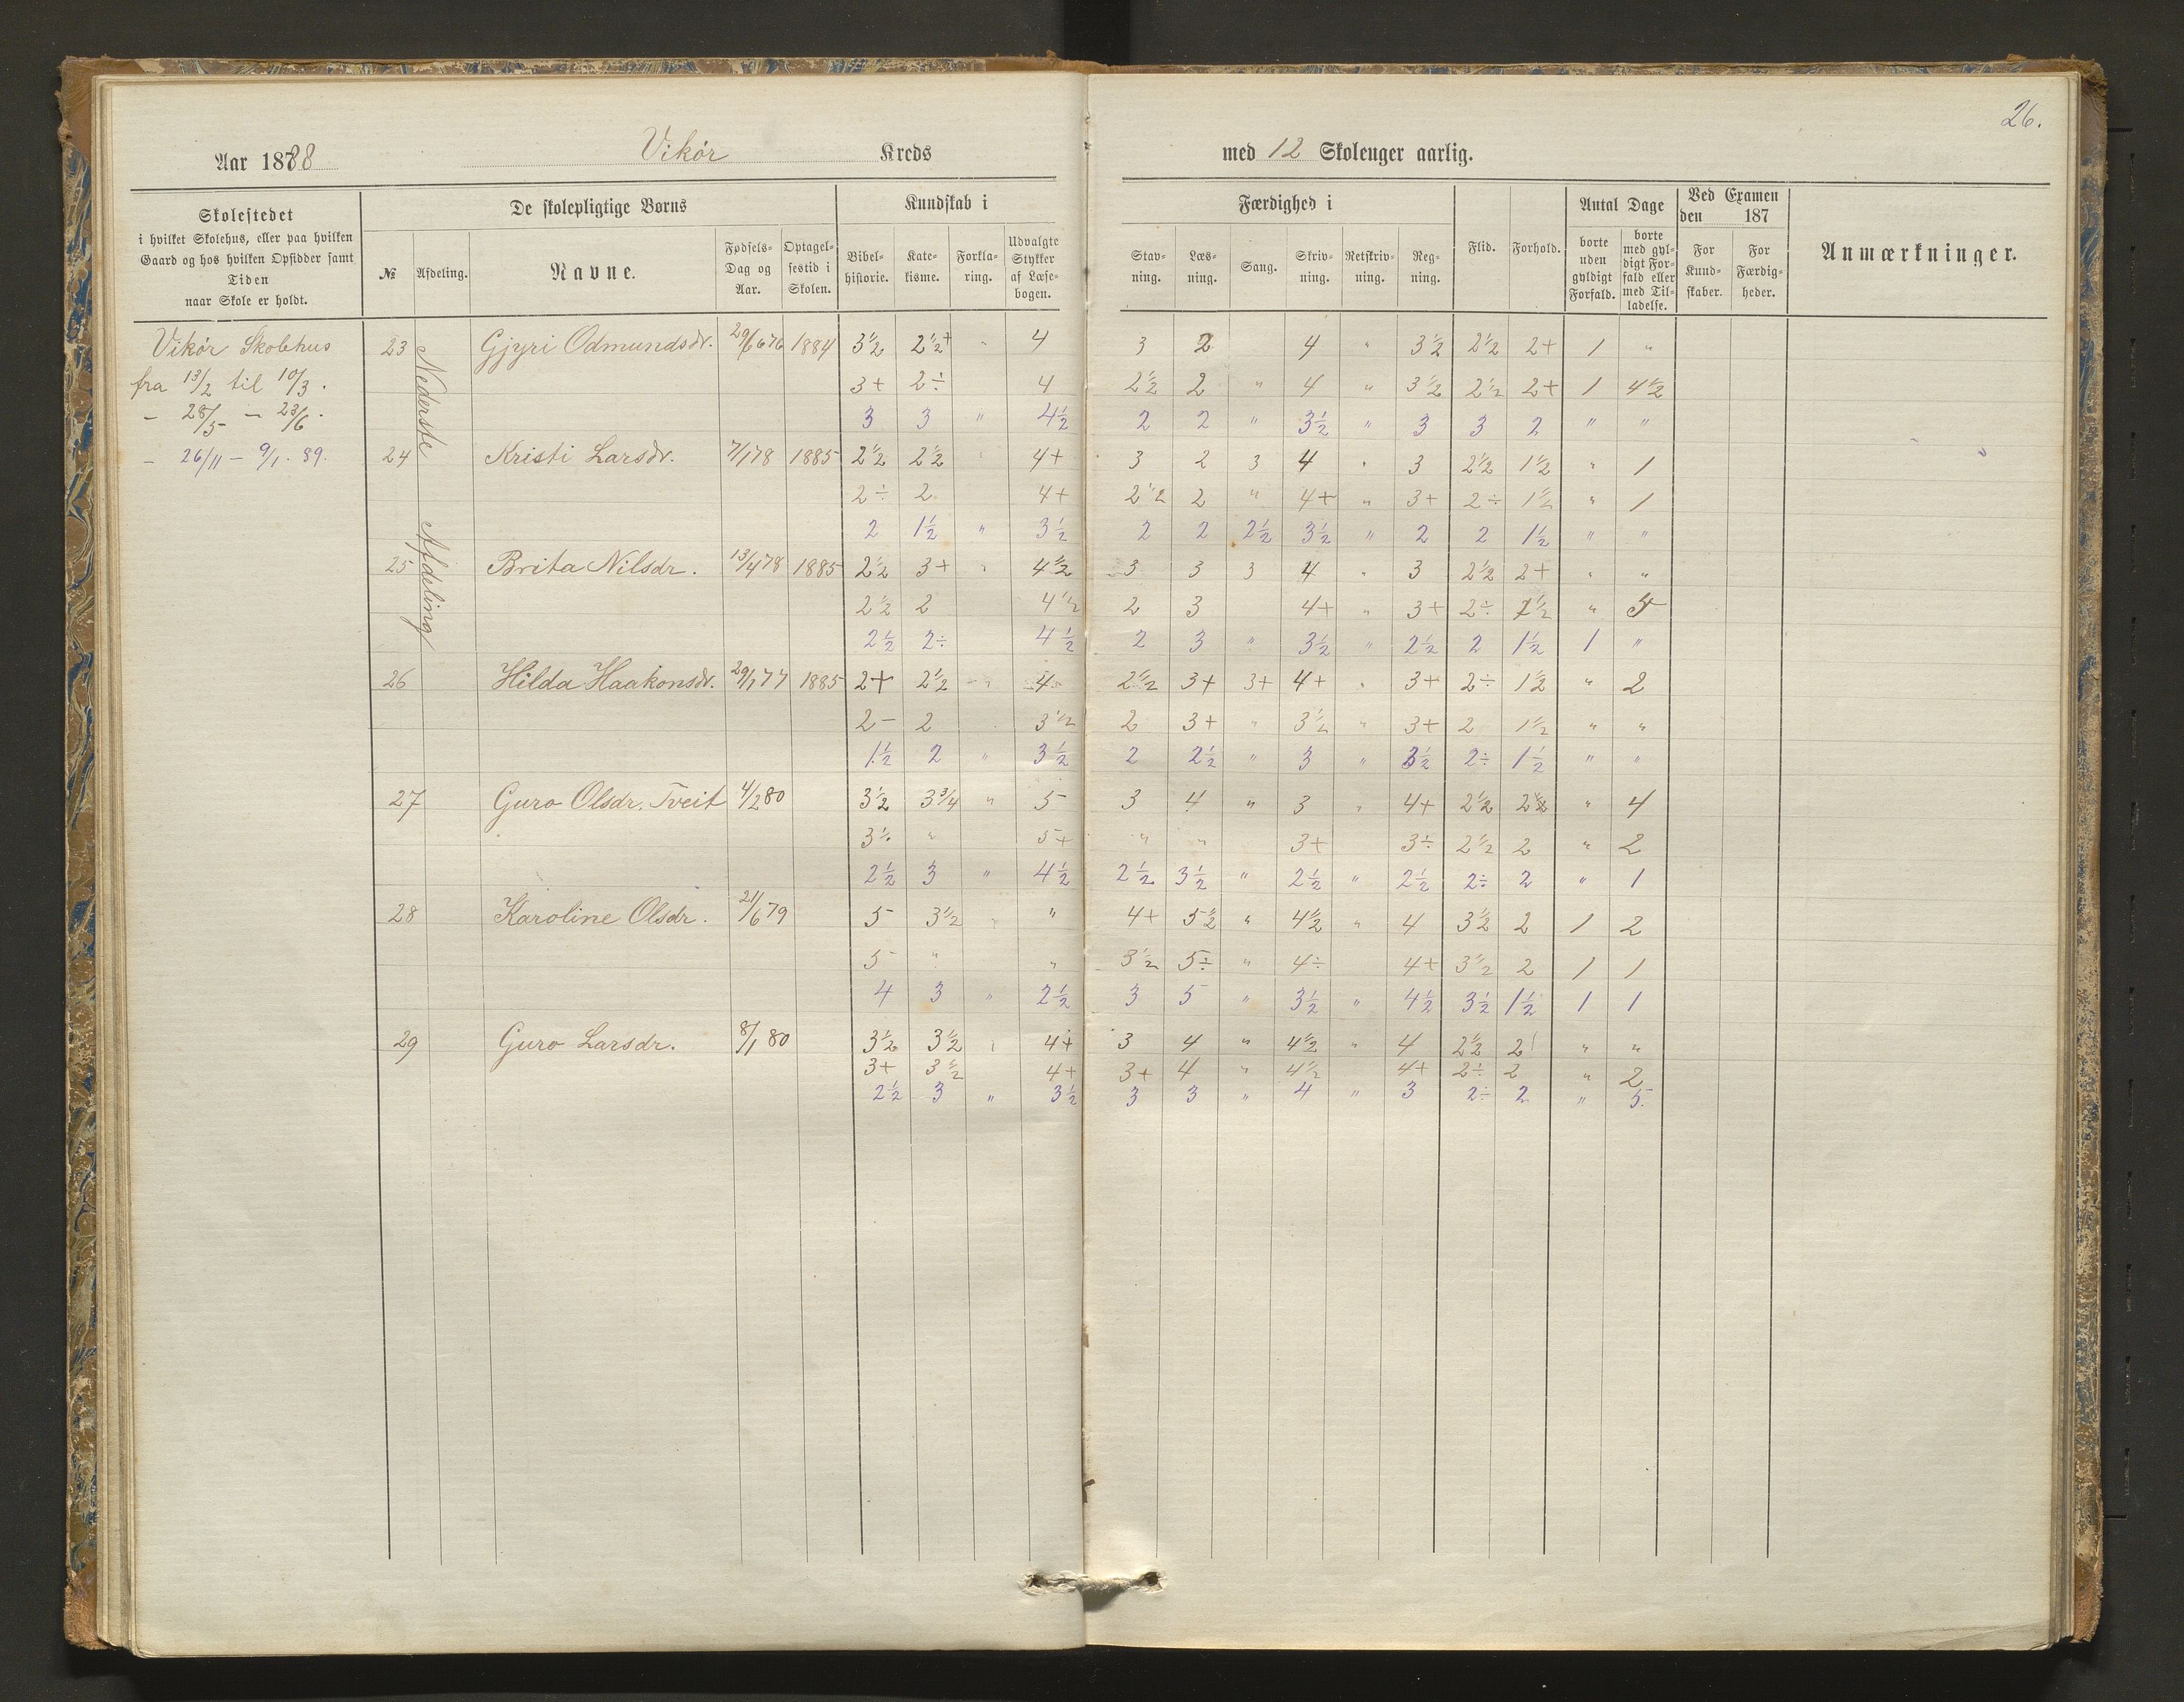 26.
Aar 1888 Vikör Kreds med 12 Skoleuger aarlig.
Skolestedet
i hvilket Skolehus, eller paa hvilken
Gaard og hos hvilken Opsidder samt
Tiden
naar Skole er holdt.
De skolepligtige Børns
№ Afdeling. Navne. Fødsels-Dag og Aar. Optagelsestid i Skolen.
Kundskab i
Bibelhistorie. Katekisme. Forklaring. Udvalgte Stykker af Læsebogen.
Færdighed i
Stavning. Læsning. Sang. Skrivning. Retskrivning. Regning.
Flid. Forhold.
Antal Dage
borte uden gyldigt Forfald. borte med gyldigt Forfald eller med Tilladelse.
Ved Examen den 187
For Kundskaber. For Færdigheder.
Anmærkninger.
Vikör Skolehus
fra 13/2 til 10/3.
- 28/5 - 23/6.
- 26/11 - 9/1. 89.
Nederste Afdeling
23 Gjyri Odmundsdr. 29/6 76 1884 3½ 2½+ " 4 3 2 4 " 3½ 2½ 2+ 1 "
3+ 2÷ 4 2½ 2 " 4 " 3½ 2½ 2+ 1 4½
3 3 " 4½ 2 2 " 3½ " 3 3 2 " "
24 Kristi Larsdr. 7/1 78 1885 2½ 2½ " 4+ 3 2 3 4 " 3 2½ 1½ " 1
2÷ 2 4+ 2½ 2 " 4+ " 3+ 2÷ 1½ " 1
2 1½ " 3½ 2 2 2½ 3½ " 2 2 1½ " "
25 Brita Nilsdr. 13/4 78 1885 2½ 3+ " 4½ 3 3 3 4 " 3 2½ 2+ " "
2½ 2 4½ 2 3 4+ " 3+ 2÷ 1½ " 5
2½ 2÷ 4½ 2 3 " 3½ " 2½ 2 1½ 1 "
26 Hilda Haakonsdr. 29/1 77 1885 2+ 2½ " 4 2½ 3+ 3+ 4+ " 3+ 2÷ 1½ " 2
2- 2 3½ 2 3+ " 3½ " 3+ 2 1½ " "
1½ 2 " 3½ 2 2½ " 3 " 3½ 2÷ 1½ " "
27 Guro Olsdr. Tveit 4/2 80 3½ 3¾ " 5 3 4 " 3 " 4+ 2½ 2½ " 4
3½ " 5+ " " 3+ 3÷ 2½ 2 " 2
2½ 3 " 4½ 2½ 3½ " 2½ " 2½ 2÷ 2 " 1
28 Karoline Olsdr. 21/6 79 5 3½ " " 4+ 5½ " 4½ " 4 3½ 2 1 2
5 " " 3½ 5÷ " 4÷ 4+ 3½ 2 1 1
4 3 " 2½ 3 5 " 3½ " 4½ 3½ 1½ 1 1
29 Guro Larsdr. 8/1 80 3½ 3½ " 4+ 3 4 " 4½ " 4 2½ 2 " "
3+ 3½ 4+ 3+ 4 " 4½ 4+ 2÷ 2 " 2
2½ 3 " 3½ 3 3 " 4 " 3 2÷ 2 " 5.